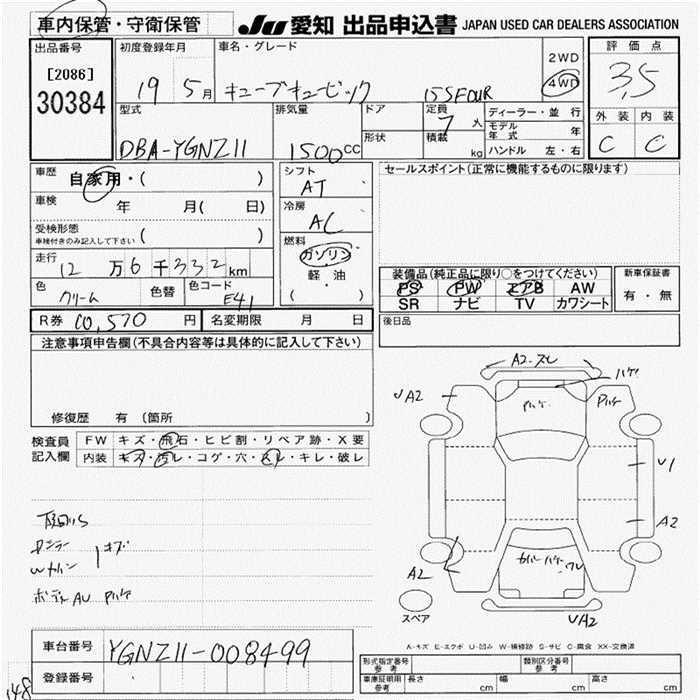 車内保管・守衛保管
JU 愛知 出品申込書 JAPAN USED CAR DEALERS ASSOCIATION
出品番号 初度登録年月 車名・グレード 評価点
[2086]
30384
19 5月 キューブキュービック 15SFOUR
2WD
4WD
3.5
型式 排気量 ドア 定員 ディーラー・並行
7人 モデル年式 年
外装 内装
C C
DBA-YGNZ11 1500cc 形状 積載 kg ハンドル 左・右
車歴 自家用・( )
シフト AT
セールスポイント(正常に機能するものに限ります)
車検 年 月( 日)
冷房 AC
受検形態 車検付きのみ記入して下さい ( )
燃料 ガソリン
軽・油
( )
走行 12万6千332km
装備品(純正品に限り○をつけてください) 新車保証書
PS PW エアB AW 有・無
SR ナビ TV カワシート
色 クリーム 色替 色コード E41
R券 10,570円 名変期限 月 日
後日品
注意事項申告欄(不具合内容等は具体的に記入して下さい)
修復歴 有 (箇所 )
検査員記入欄
FW キズ・飛石・ヒビ割・リペア跡・X要
内装 キズ・汚レ・コゲ・穴・スレ・キレ・破レ
キズ
ボディAU
A2
ハゲ
A2
U1
A2
A2
UA2
スペア
A-キズ E-エクボ U-凹み W-補修跡 S-サビ C-腐食 XX-交換済
車台番号 YGNZ11-008499
登録番号
148
形式指定番号 参考 類別区分番号 参考
車庫証明 参考 長さ cm 幅 cm 高さ cm